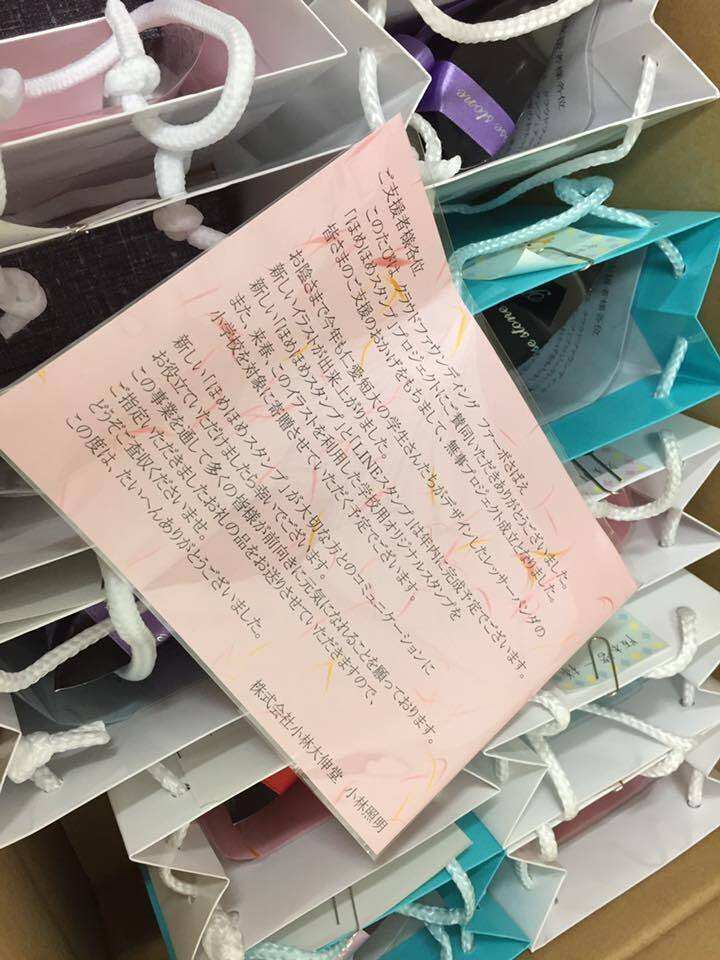 ご支援者様各位
このたびは、クラウドファウンディング　ファーボさばえ
「ほめほめスタンプ」プロジェクトにご賛同いただきありがとうございました。
皆さまのご支援のおかげをもちまして、無事プロジェクト成立となりました。
お陰さまで今年も仁愛短大の学生さんたちがデザインしたレッサーパンダの
新しいイラストが出来上がりました。
新しい「ほめほめスタンプ」と「LINEスタンプ」は年内に完成予定でございます。
また、来春、このイラストを利用した学校用オリジナルスタンプを
小学校を対象に寄贈させていただく予定でございます。
新しい「ほめほめスタンプ」が大切な方とのコミュニケーションに
お役立ていただけましたら幸いでございます。
この事業を通して多くの皆様が前向きに元気になれることを願っております。
ご指定いただきましたお礼の品をお送りさせていただきますので、
どうぞご査収くださいませ。
この度は、たいへんありがとうございました。
株式会社小林大伸堂　小林照明
se stone
様各位
se stone
様各位